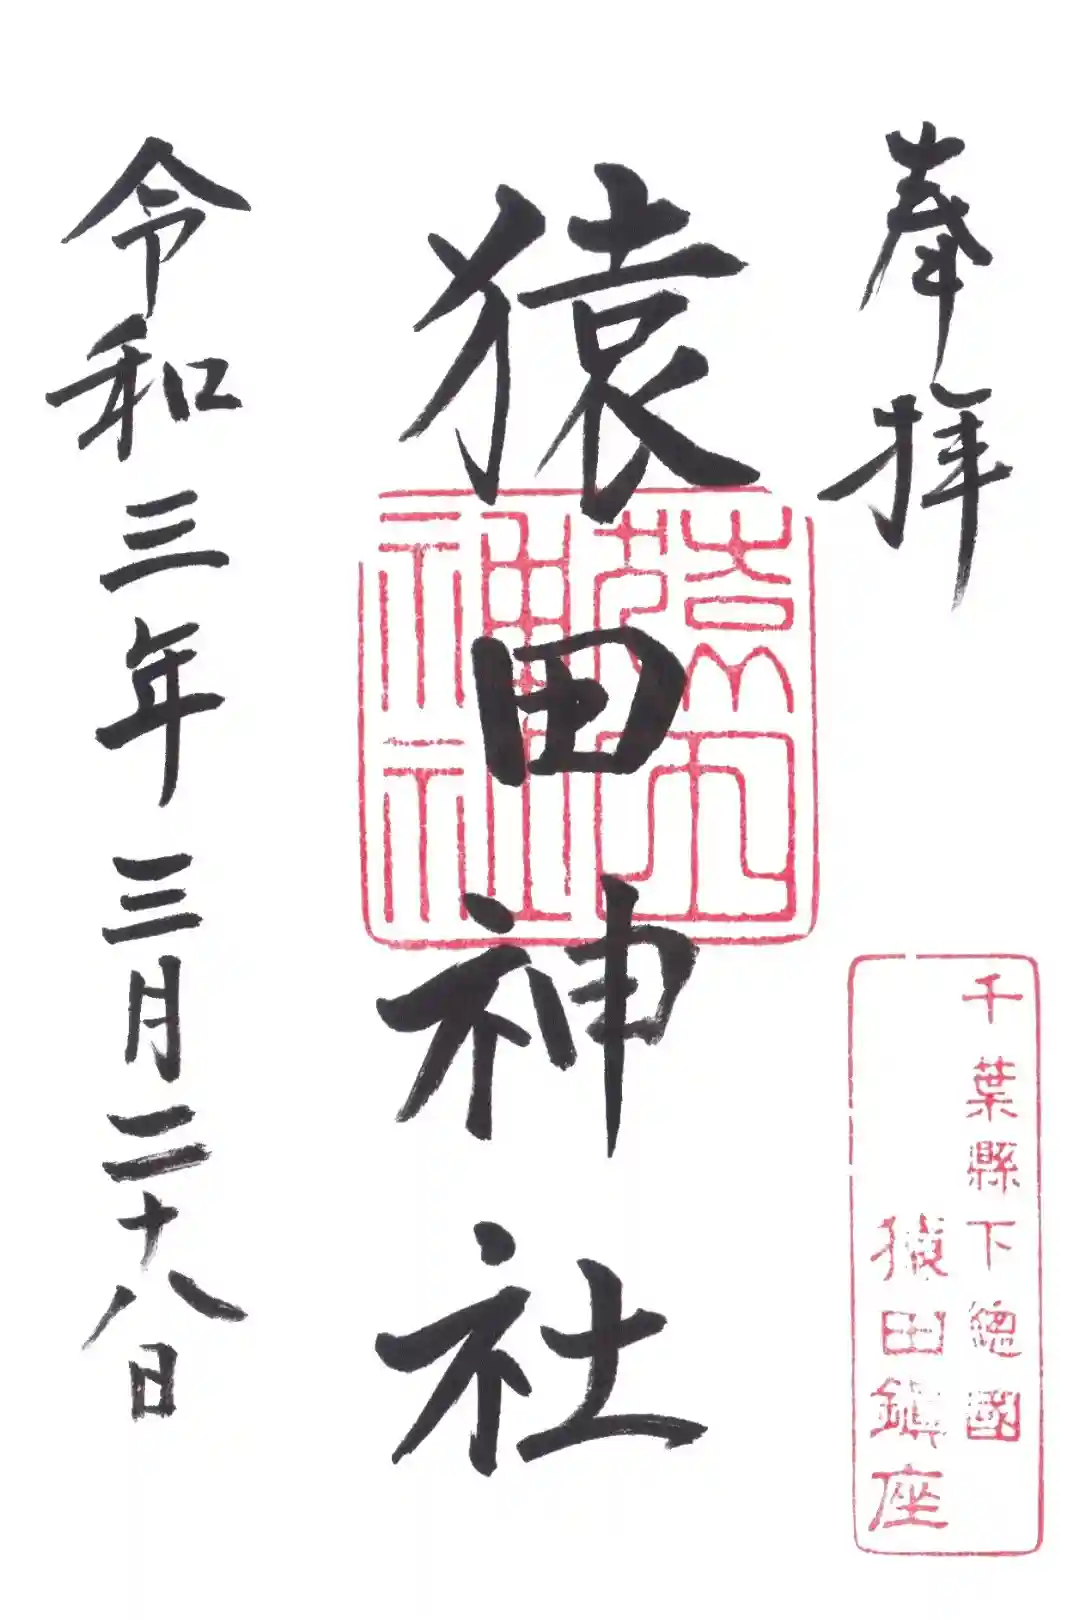 奉拝
千葉縣下總國
猿田鎭座
猿田神社
猿田神社
令和三年三月二十八日